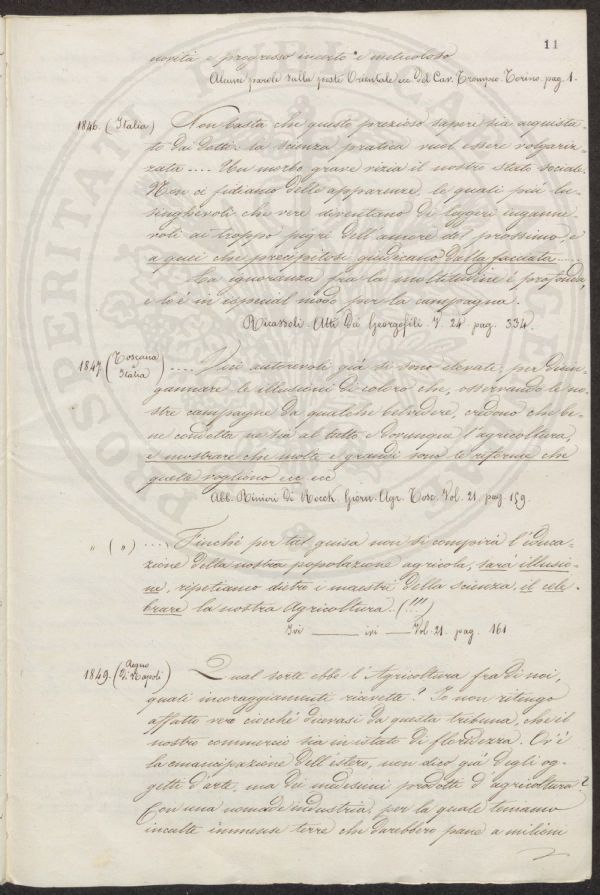 11
novità e progresso incerto e meticoloso
Alcune parole sulla peste Orientale ecc. del Cav. Trompeo. Torino. pag. 1.
1846. (Italia) Non basta che questo prezioso sapere sia acquista-
to dai dotti: la scienza pratica vuol essere volgariz-
zata .... Un morbo grave vizia il nostro stato sociale.
Non ci fidiamo delle apparenze, le quali più lu-
singhevoli che vere diventano di leggeri inganne-
voli ai troppo pigri dell'amore del prossimo, e
a quei che precipitosi giudicano dalla facciata .....
La ignoranza fra la moltitudine è profonda,
e lo è in ispecial modo per la campagna.
Ricasoli. Atti dei Georgofili. V. 24. pag. 334.
1847. (Toscana e Italia) .... Voci autorevoli già si sono elevate, per disin-
gannare le illusioni di coloro che, osservando le no-
stre campagne da qualche belvedere, credono che be-
ne condotta ne sia al tutto e dovunque l'agricoltura,
e mostrare che molte e grandi sono le riforme che
quella vogliono ecc ecc
Abb. Rinieri di Rocch. Giorn. Agr. Tosc. Vol. 21. pag. 159.
" ( " ) .... Finchè per tal guisa non si compirà l'educa-
zione della nostra popolazione agricola, sarà illusio-
ne, ripetiamo dietro i maestri della scienza, il cele-
brare la nostra Agricoltura. (!!!)
Ivi —— ivi — Vol. 21. pag. 161
1849. (Regno di Napoli) Qual sorte ebbe l'Agricoltura fra di noi,
quali incoraggiamenti ricevette? Io non ritengo
affatto vero ciocchè dicevasi da questa tribuna, che il
nostro commercio sia in istato di floridezza. Ov'è
la emancipazione dell'estero, non dico già degli og-
getti d'arte, ma dei medesimi prodotti d'agricoltura?
Con una nomade industria, per la quale teniamo
inculte immense terre che darebbero pane a milioni